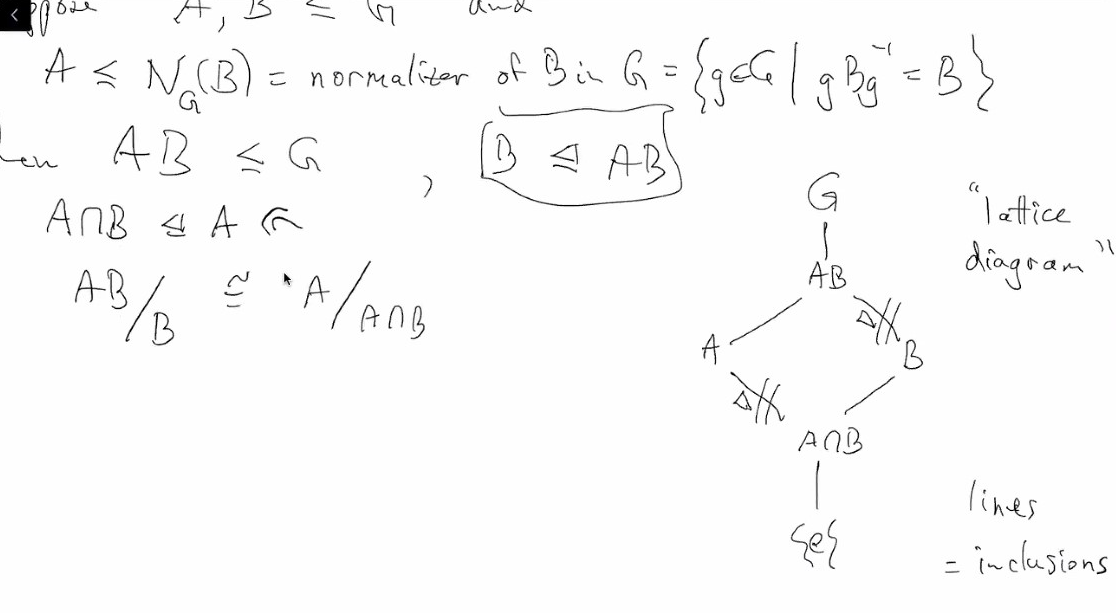 ppose A, B ≤ G and
A ≤ N_G(B) = normalizer of B in G = {g∈G | gBg⁻¹ = B}
hen AB ≤ G , B ⊴ AB
A∩B ⊴ A
AB/B ≅ A/A∩B
G
AB
A
B
A∩B
{e}
"lattice
diagram"
lines
= inclusions